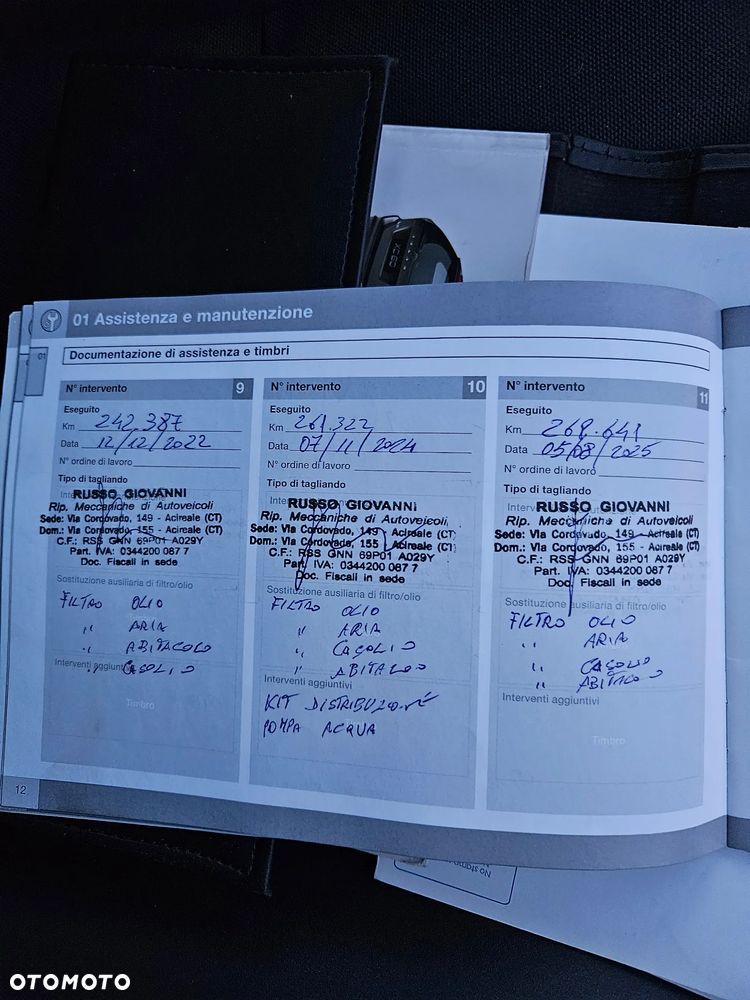 XC60
01 Assistenza e manutenzione
01
Documentazione di assistenza e timbri
N° intervento 9
Eseguito
Km 242.387
Data 12/12/2022
N° ordine di lavoro
Tipo di tagliando
RUSSO GIOVANNI
Rip. Meccaniche di Autoveicoli
Sede: Via Cordovado, 149 - Acireale (CT)
Dom.: Via Cordovado, 155 - Acireale (CT)
C.F.: RSS GNN 69P01 A029Y
Part. IVA: 0344200 087 7
Doc. Fiscali in sede
Sostituzione ausiliaria di filtro/olio
FILTRO OLIO
" ARIA
" ABITACOLO
" GASOLIO
Interventi aggiuntivi
Timbro
N° intervento 10
Eseguito
Km 261.322
Data 07/11/2024
N° ordine di lavoro
Tipo di tagliando
RUSSO GIOVANNI
Rip. Meccaniche di Autoveicoli
Sede: Via Cordovado, 149 - Acireale (CT)
Dom.: Via Cordovado, 155 - Acireale (CT)
C.F.: RSS GNN 69P01 A029Y
Part. IVA: 0344200 087 7
Doc. Fiscali in sede
Sostituzione ausiliaria di filtro/olio
FILTRO OLIO
" ARIA
" GASOLIO
" ABITACOLO
Interventi aggiuntivi
KIT DISTRIBUZIONE
POMPA ACQUA
N° intervento 11
Eseguito
Km 268.641
Data 05/08/2025
N° ordine di lavoro
Tipo di tagliando
RUSSO GIOVANNI
Rip. Meccaniche di Autoveicoli
Sede: Via Cordovado, 149 - Acireale (CT)
Dom.: Via Cordovado, 155 - Acireale (CT)
C.F.: RSS GNN 69P01 A029Y
Part. IVA: 0344200 087 7
Doc. Fiscali in sede
Sostituzione ausiliaria di filtro/olio
FILTRO OLIO
" ARIA
" GASOLIO
" ABITACOLO
Interventi aggiuntivi
Timbro
12
OTOMOTO